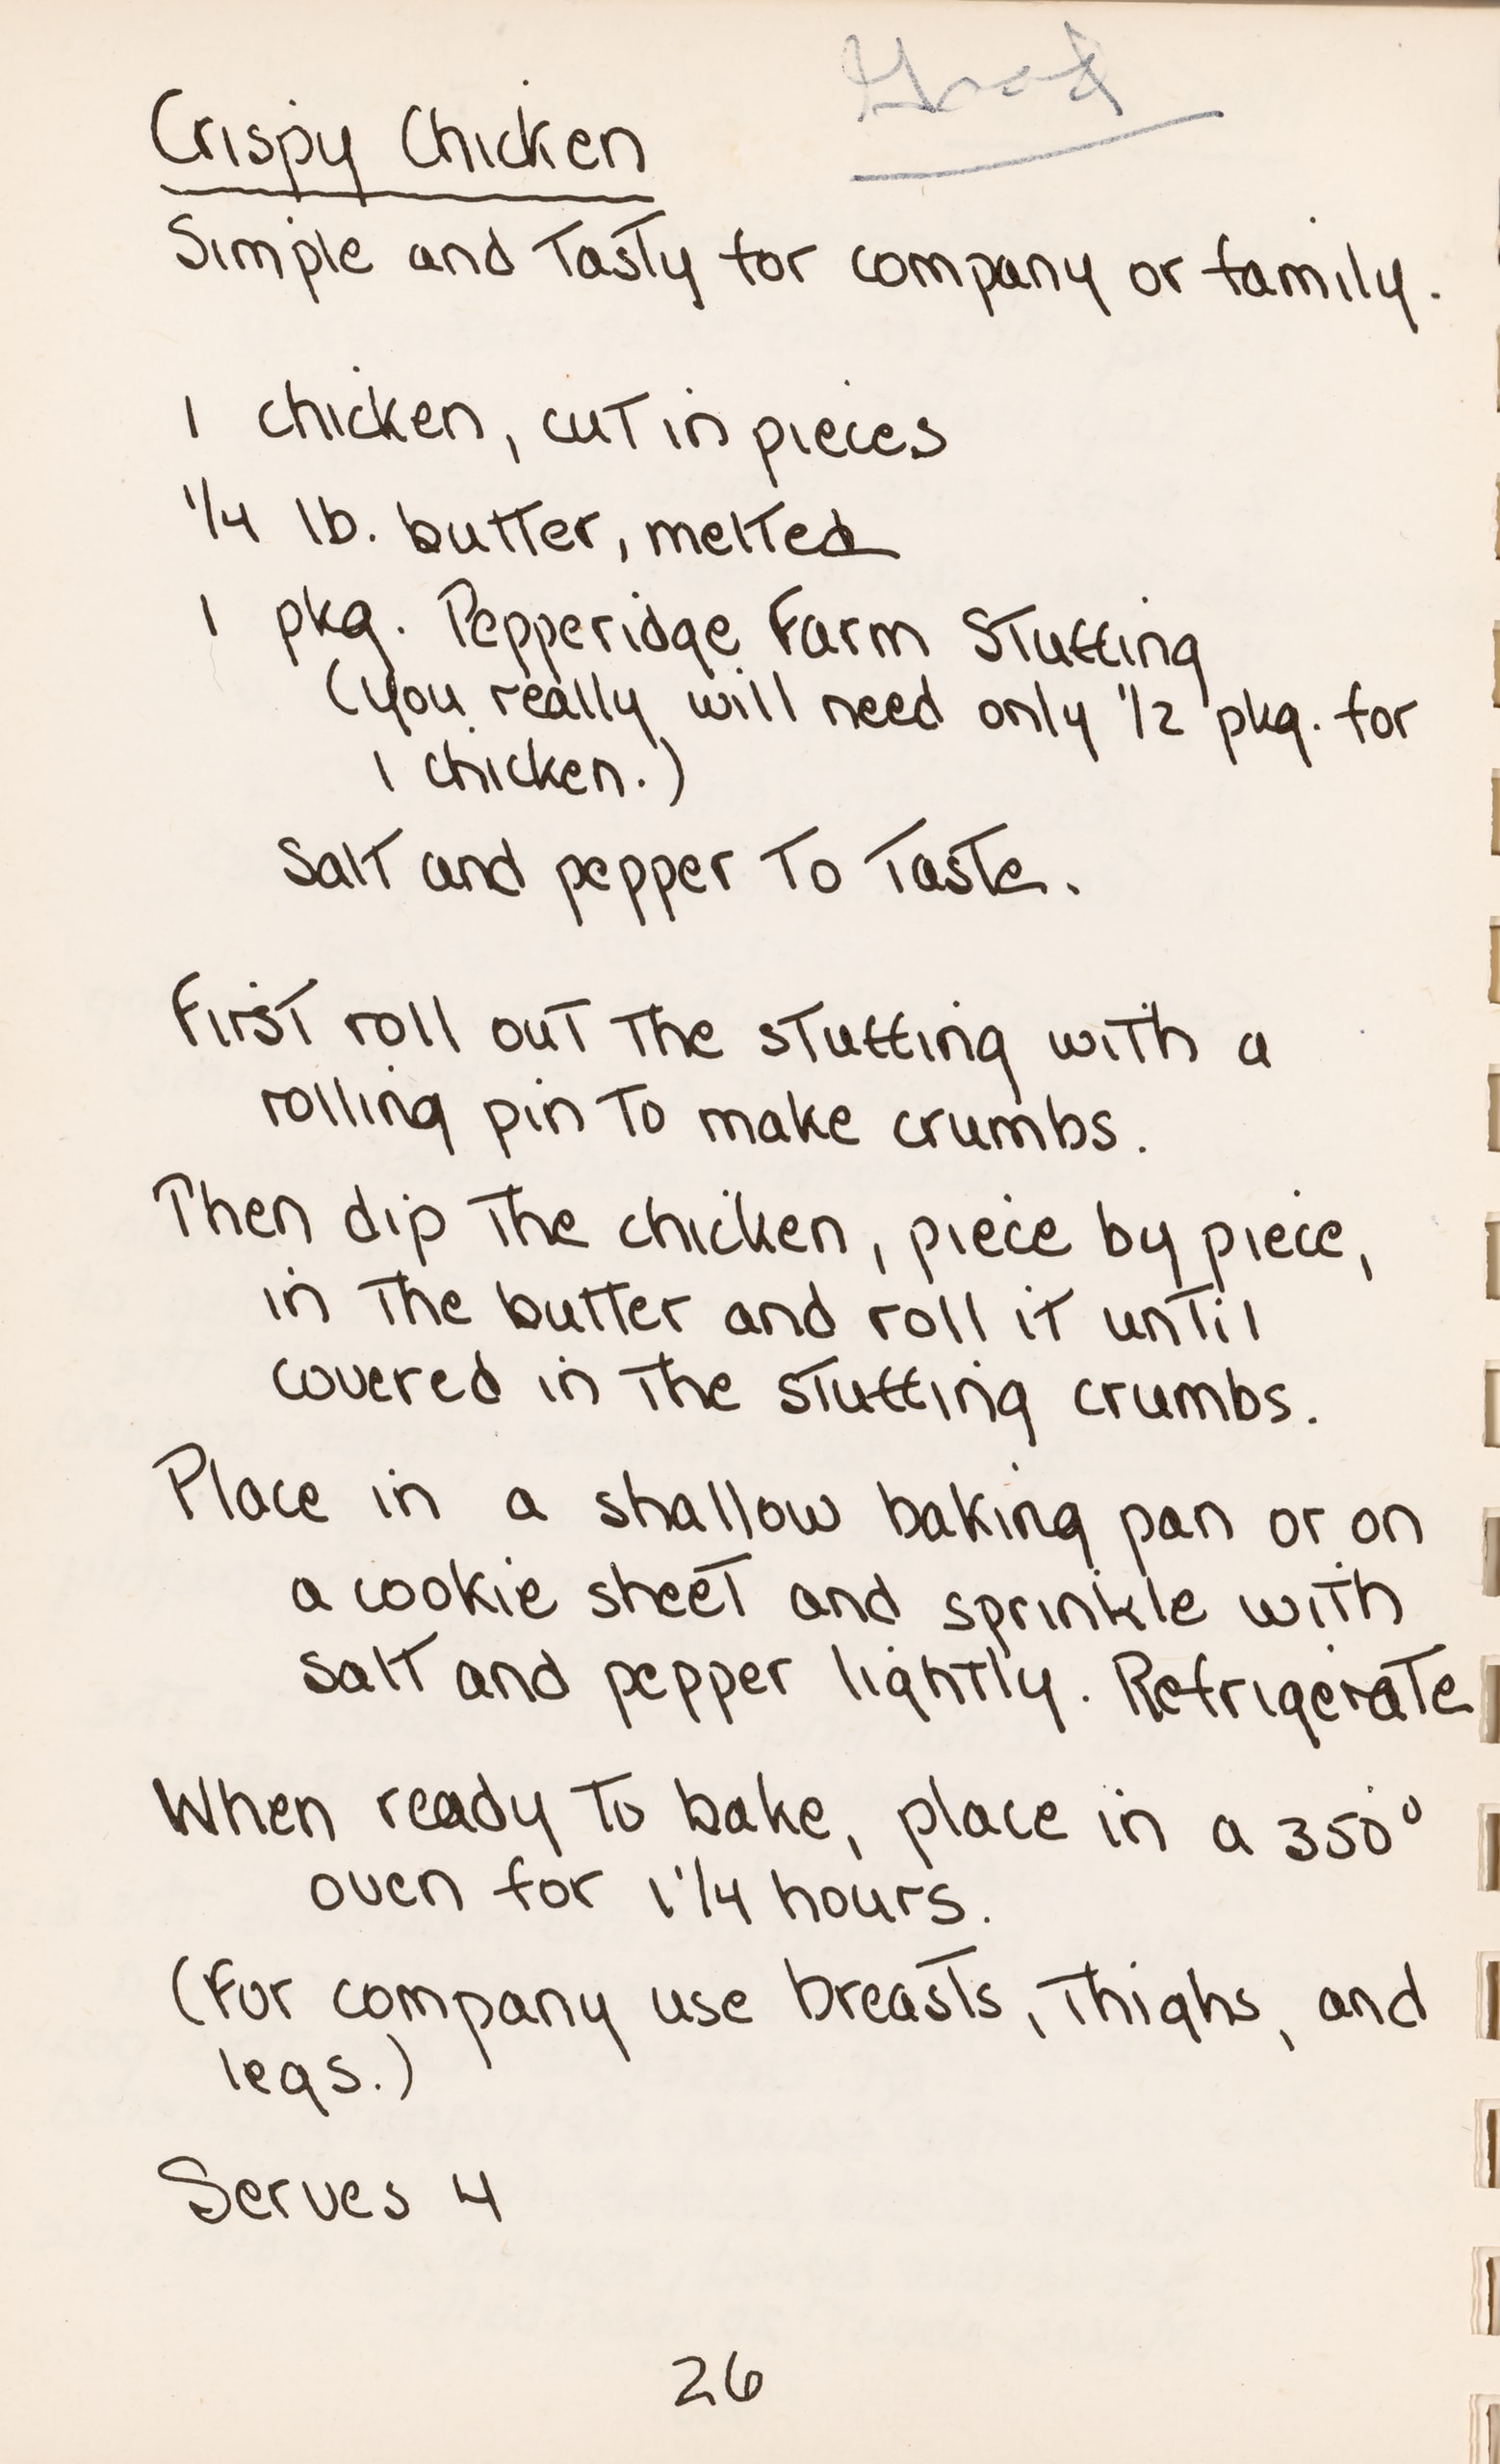 Crispy Chicken
Simple and Tasty for company or family.
1 chicken, cut in pieces
1/4 lb. butter, melted
1 pkg. Pepperidge Farm Stuffing
(you really will need only 1/2 pkg. for
1 chicken.)
Salt and pepper To Taste.
First roll out The stuffing with a
rolling pin To make crumbs.
Then dip The chicken, piece by piece,
in The butter and roll it until
covered in The stuffing crumbs.
Place in a shallow baking pan or on
a cookie sheet and sprinkle with
salt and pepper lightly. Refrigerate
When ready To bake, place in a 350°
oven for 1 1/4 hours.
(For company use breasts, Thighs, and
legs.)
Serves 4
26